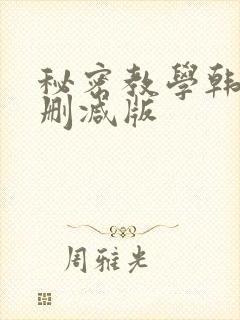 秘密教學韩
删减版
周雅光